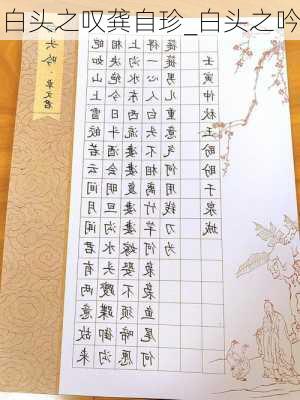 白头之叹龚自珍_白头之吟
头吟·卓文君
皑如山上雪皎若云间月闻君有两意故来
相决绝今日斗酒会明旦沟水头躞蹀御沟
上沟水东西流凄凄复凄凄嫁娶不须啼愿
得一心人白头不相离竹竿何袅袅鱼尾何
簁簁男儿重意气何用钱刀为
壬寅仲秋王盼盼于泉城